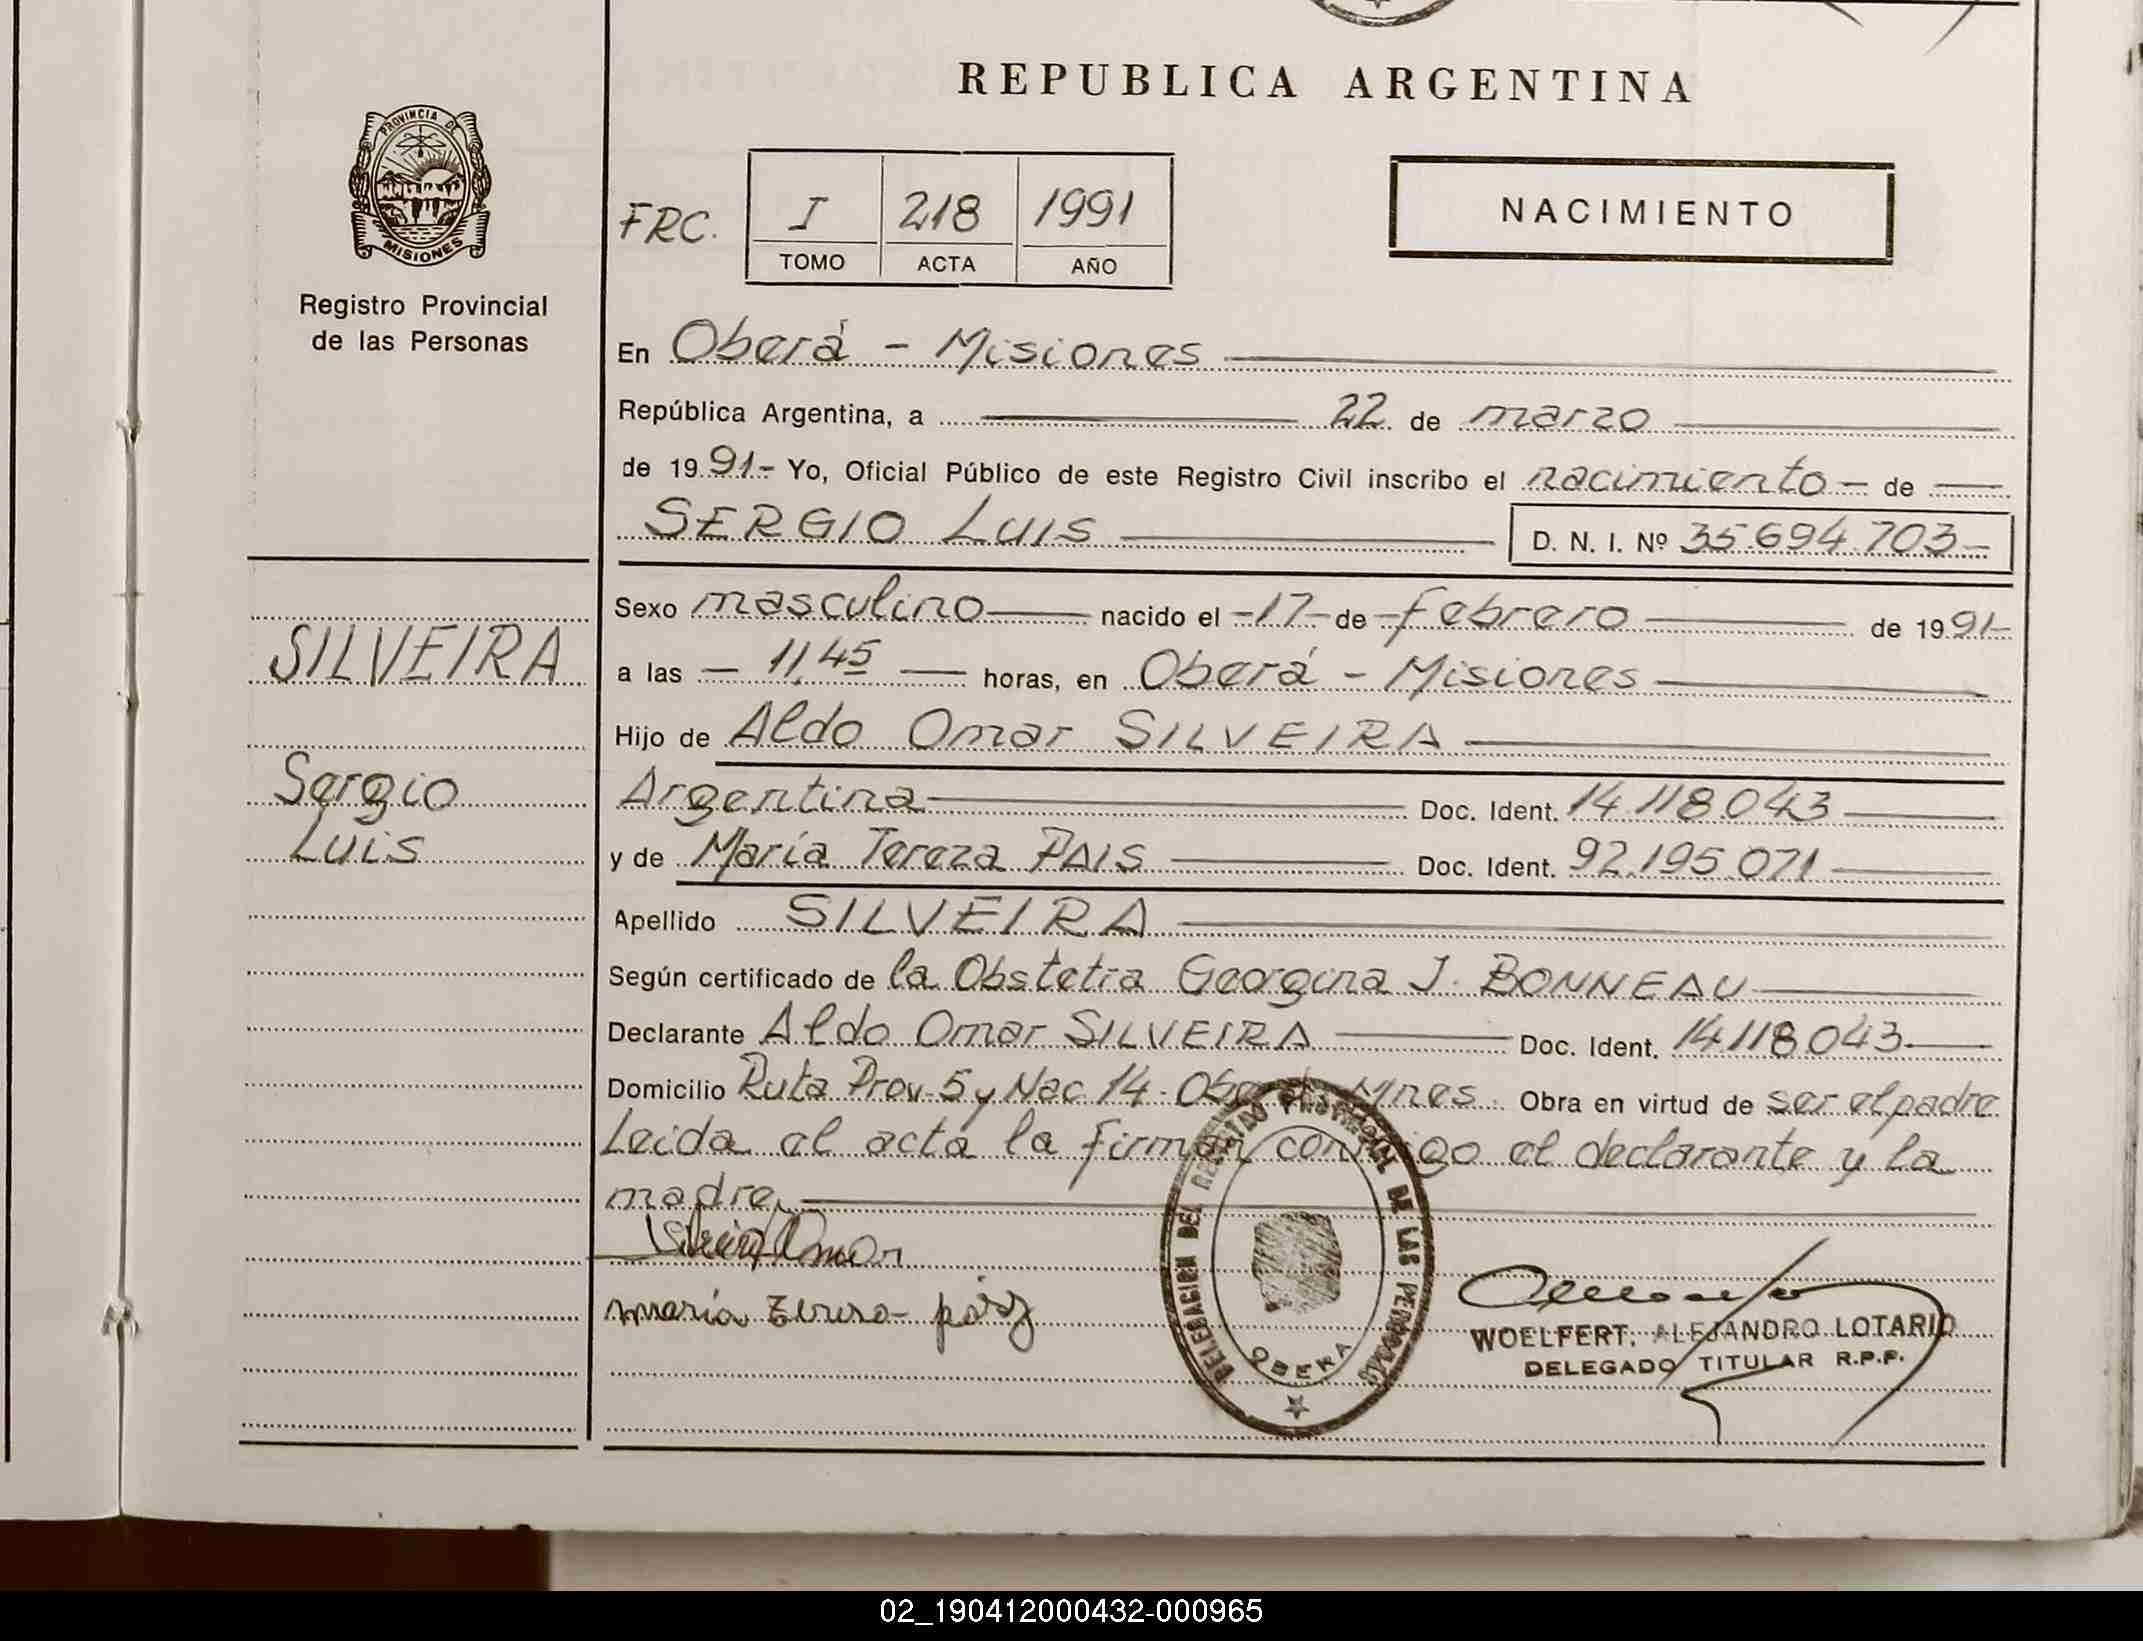 REPUBLICA ARGENTINA
PROVINCIA DE
MISIONES
Registro Provincial
de las Personas
FRC.
I 218 1991
TOMO ACTA AÑO
NACIMIENTO
En Oberá - Misiones
República Argentina, a 22 de marzo
de 1991- Yo, Oficial Público de este Registro Civil inscribo el nacimiento - de
SERGIO LUIS D. N. I. Nº 35.694.703-
SILVEIRA
Sergio
Luis
Sexo masculino nacido el -17- de -febrero de 1991-
a las - 11,45 - horas, en Oberá - Misiones
Hijo de Aldo Omar SILVEIRA
Argentina Doc. Ident. 14.118.043
y de María Tereza PAIS Doc. Ident. 92.195.071
Apellido SILVEIRA
Según certificado de la Obstetra Georgina J. BONNEAU
Declarante Aldo Omar SILVEIRA Doc. Ident. 14.118.043
Domicilio Ruta Prov. 5 y Nac 14 - Oberá Mnes. Obra en virtud de ser el padre
Leida el acta la firman conmigo el declarante y la
madre,
Omar
maria
DELEGACION DEL REGISTRO PROVINCIAL DE LAS PERSONAS
OBERA
WOELFERT, ALEJANDRO LOTARIO
DELEGADO TITULAR R.P.P.
02_190412000432-000965